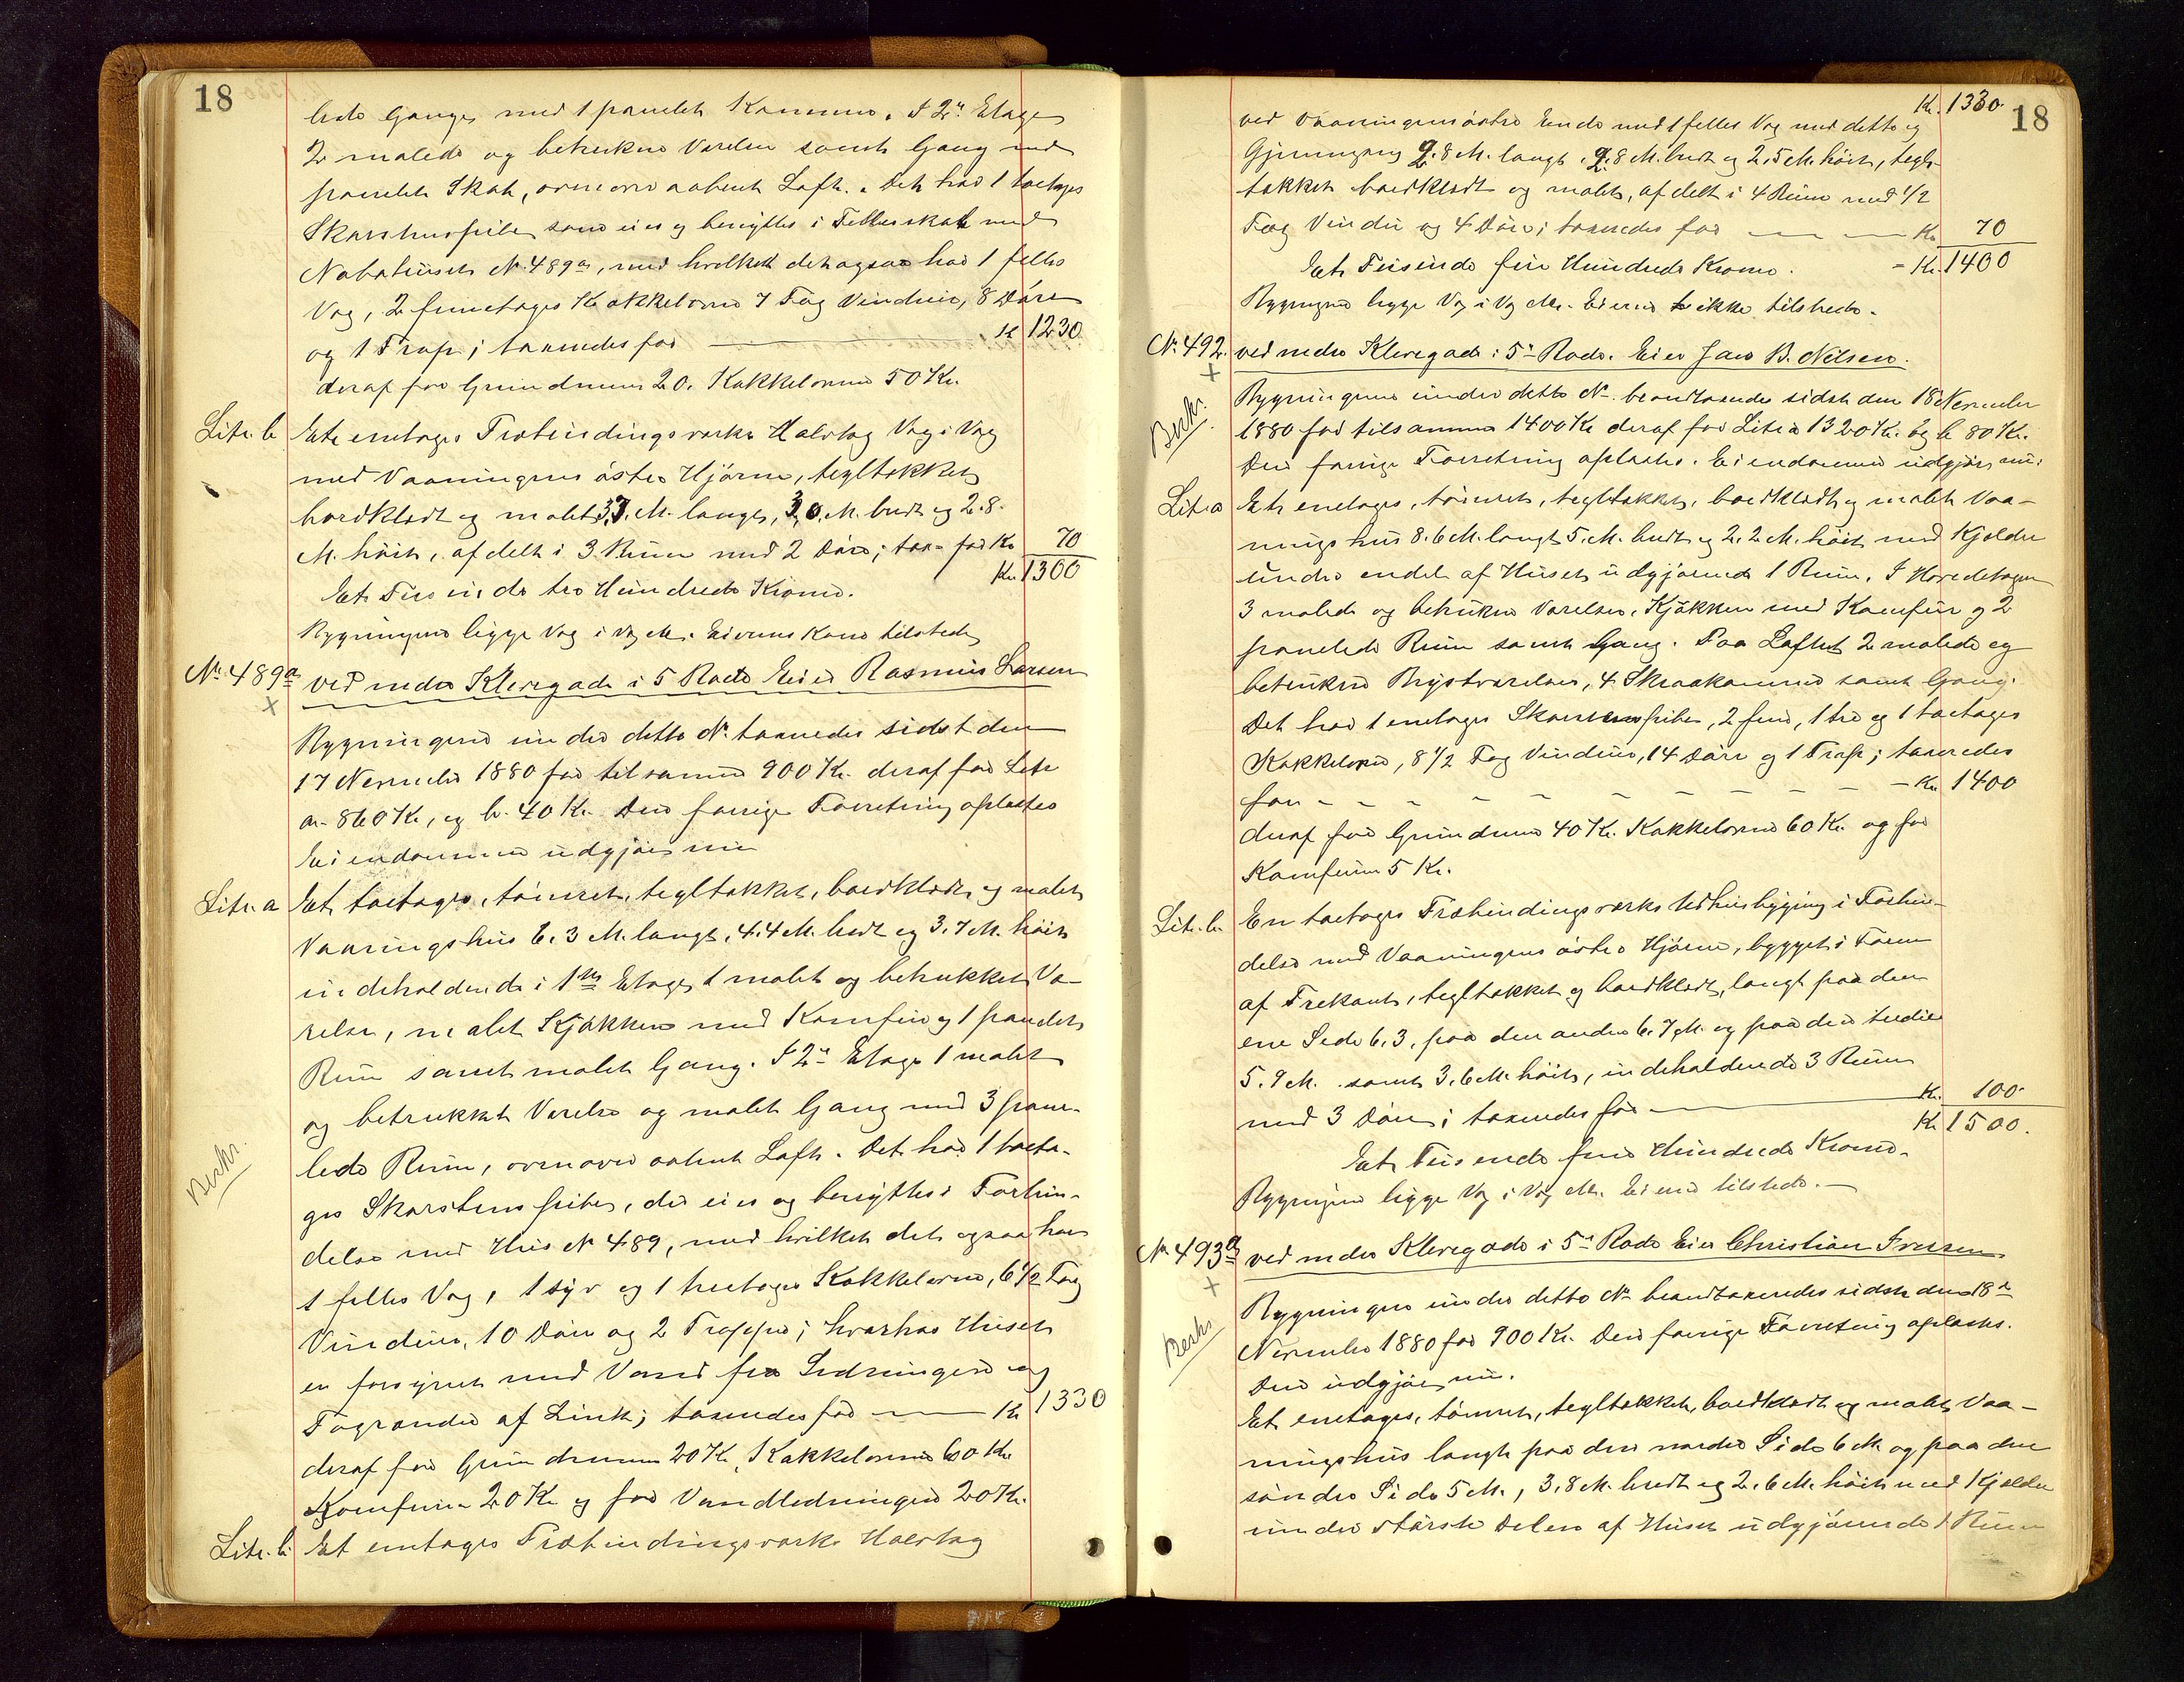 18
lede Gange med 1 panelet Kammer. I 2n Etage
2 malede og betrukne Værelser samt Gang med
panelet Skab, ovenover aabent Loft. Det har 1 toetages
Skorstenspibe som eies og benyttes i Fellesskab med
Nabohuset No 489a, med hvilket det ogsaa har 1 felles
Væg, 2 fireetages Kakkelovne 7 Fag Vinduer, 8 Døre
og 1 Trappe; taxeredes for — Kr 1230.
deraf for Grundmuren 20. Kakkelovne 50 Kr.
Litr. b Et enetages Træbindingsverks Halvtag Væg i Væg
med Vaaningens østre Hjørne, tegltækket,
bordklædt og malet 3,7. M. langt, 3,0. M. bredt og 2.8.
M. høit, afdelt i 3 Rum med 2 Døre; tax- for Kr 70
Kr. 1300
Et Tusinde tre Hundrede Kroner.
Bygningerne ligge Væg i Væg M. Eierens Kone tilstede
No 489a ved nedre Klevegade i 5 Rode Eier Rasmus Larsen
Bygningerne under dette No taxeredes sidst den
17 November 1880 for tilsammen 900 Kr. deraf for Litr
a. 860 Kr, og b. 40 Kr. Den forrige Forretning oplæstes
Eiendommen udgjør nu
Litr. a Et toetages, tømret, tegltækket, bordklædt og malet
Vaaningshus 6.3 M. langt, 4.4 M. bredt og 3.7 M. høit
indeholdende i 1ste Etage 1 malet og betrukket Væ-
relse, malet Kjøkken med Komfur og 1 panelet
Rum samt malet Gang. I 2n Etage 1 malet
og betrukket Værelse og malet Gang med 3 pane-
lede Rum, ovenover aabent Loft. Det har 1 toeta-
Beskr.
ges Skorstenspibe, der eies og benyttes i Forbin-
delse med Hus No 489, med hvilket det ogsaa har
1 felles Væg, 1 syv og 1 treetages Kakkelovne, 6 1/2 Fag
Vinduer, 10 Døre og 2 Trapper; hvorhos Huset
er forsynet med Vand fra Ledningen og
Tagrender af Zink; taxeredes for — Kr 1330
deraf for Grundmuren 20 Kr, Kakkelovne 60 Kr.
Komfuren 20 Kr og for Vandledningen 20 Kr.
Litr. b. Et enetages Træbindingsverks Halvtag
18
Kr. 1330
ved Vaaningens østre Ende med 1 felles Væg med dette og
2.8 M. langt, 2.8 M. bredt og 2,5 M. høit, tegl-
tækket bordklædt og malet, afdelt i 4 Rum med 1/2
Fag Vindu og 4 Døre; taxeredes for — — Kr 70
Et Tusinde fire Hundrede Kroner. - Kr. 1400
Bygningerne ligge Væg i Væg M. Eieren ikke tilstede.
No 492. ved nedre Klevegade i 5n Rode. Eier Jens B. Nelsen.
Beskr.
Bygningerne under dette No brandtaxeredes sidst den 18 November
1880 for tilsammen 1400 Kr deraf for Litr a 1320 Kr. og b 80 Kr.
Den forrige Forretning oplæstes. Eiendommen udgjør nu:
Litr. a Et enetages, tømret, tegltækket, bordklædt og malet Vaa-
ningshus 8.6 M. langt 5. M. bredt og 2.2 M. høit med Kjelder
under endel af Huset udgjørende 1 Rum. I Hovedetagen
3 malede og betrukne Værelser, Kjøkken med Komfur og 2
panelede Rum samt Gang. Paa Loftet 2 malede og
betrukne Brystværelser, 4 Skraakammer samt Gang.
Det har 1 enetages Skorstenspibe, 2 fire, 1 tre og 1 toetages
Kakkelovne, 8 1/2 Fag Vinduer, 14 Døre og 1 Trappe; taxeredes
for - - - - - - - - - Kr 1400
deraf for Grundmuren 40 Kr. Kakkelovne 60 Kr. og for
Komfuren 5 Kr.
Litr. b. En toetages Træbindingsverks Udhusbygning i Forbin-
delse med Vaaningens østre Hjørne, bygget i Form
af Trekant, tegltækket og bordklædt, langt paa den
ene Side 6,3, paa den anden 6.7 M. og paa den tredie
5.9 M. samt 3.6 M. høit, indeholdende 3 Rum
med 3 Døre; taxeredes for — Kr. 100
Kr 1500.
Et Tusende fem Hundrede Kroner.
Bygningerne ligge Væg i Væg M. Eieren tilstede. —
No 493a ved nedre Klevegade i 5n Rode Eier Christian Iversen
Beskr.
Bygningen under dette No brandtaxeredes sidst den 18n
November 1880 for 900 Kr. Den forrige Forretning oplæstes.
Den udgjør nu.
Et enetages, tømret, tegltækket, bordklædt og malet Vaa-
ningshus langt paa den nordre Side 6 M. og paa den
søndre Side 5 M., 3,8 M. bredt og 2.6 M. høit med Kjelder
under største Delen af Huset udgjørende 1 Rum